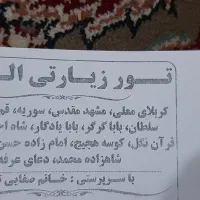 تور زیارتی الـ
کربلای معلی، مشهد مقدس، سوریه، قم
سلطان، بابا گرگر، بابا یادگار، شاه ا
قرآن نگل، کوسه هجیج، امام زاده حسن
شاهزاده محمد، دعای عرفه
با سرپرستی : خانم صفایی